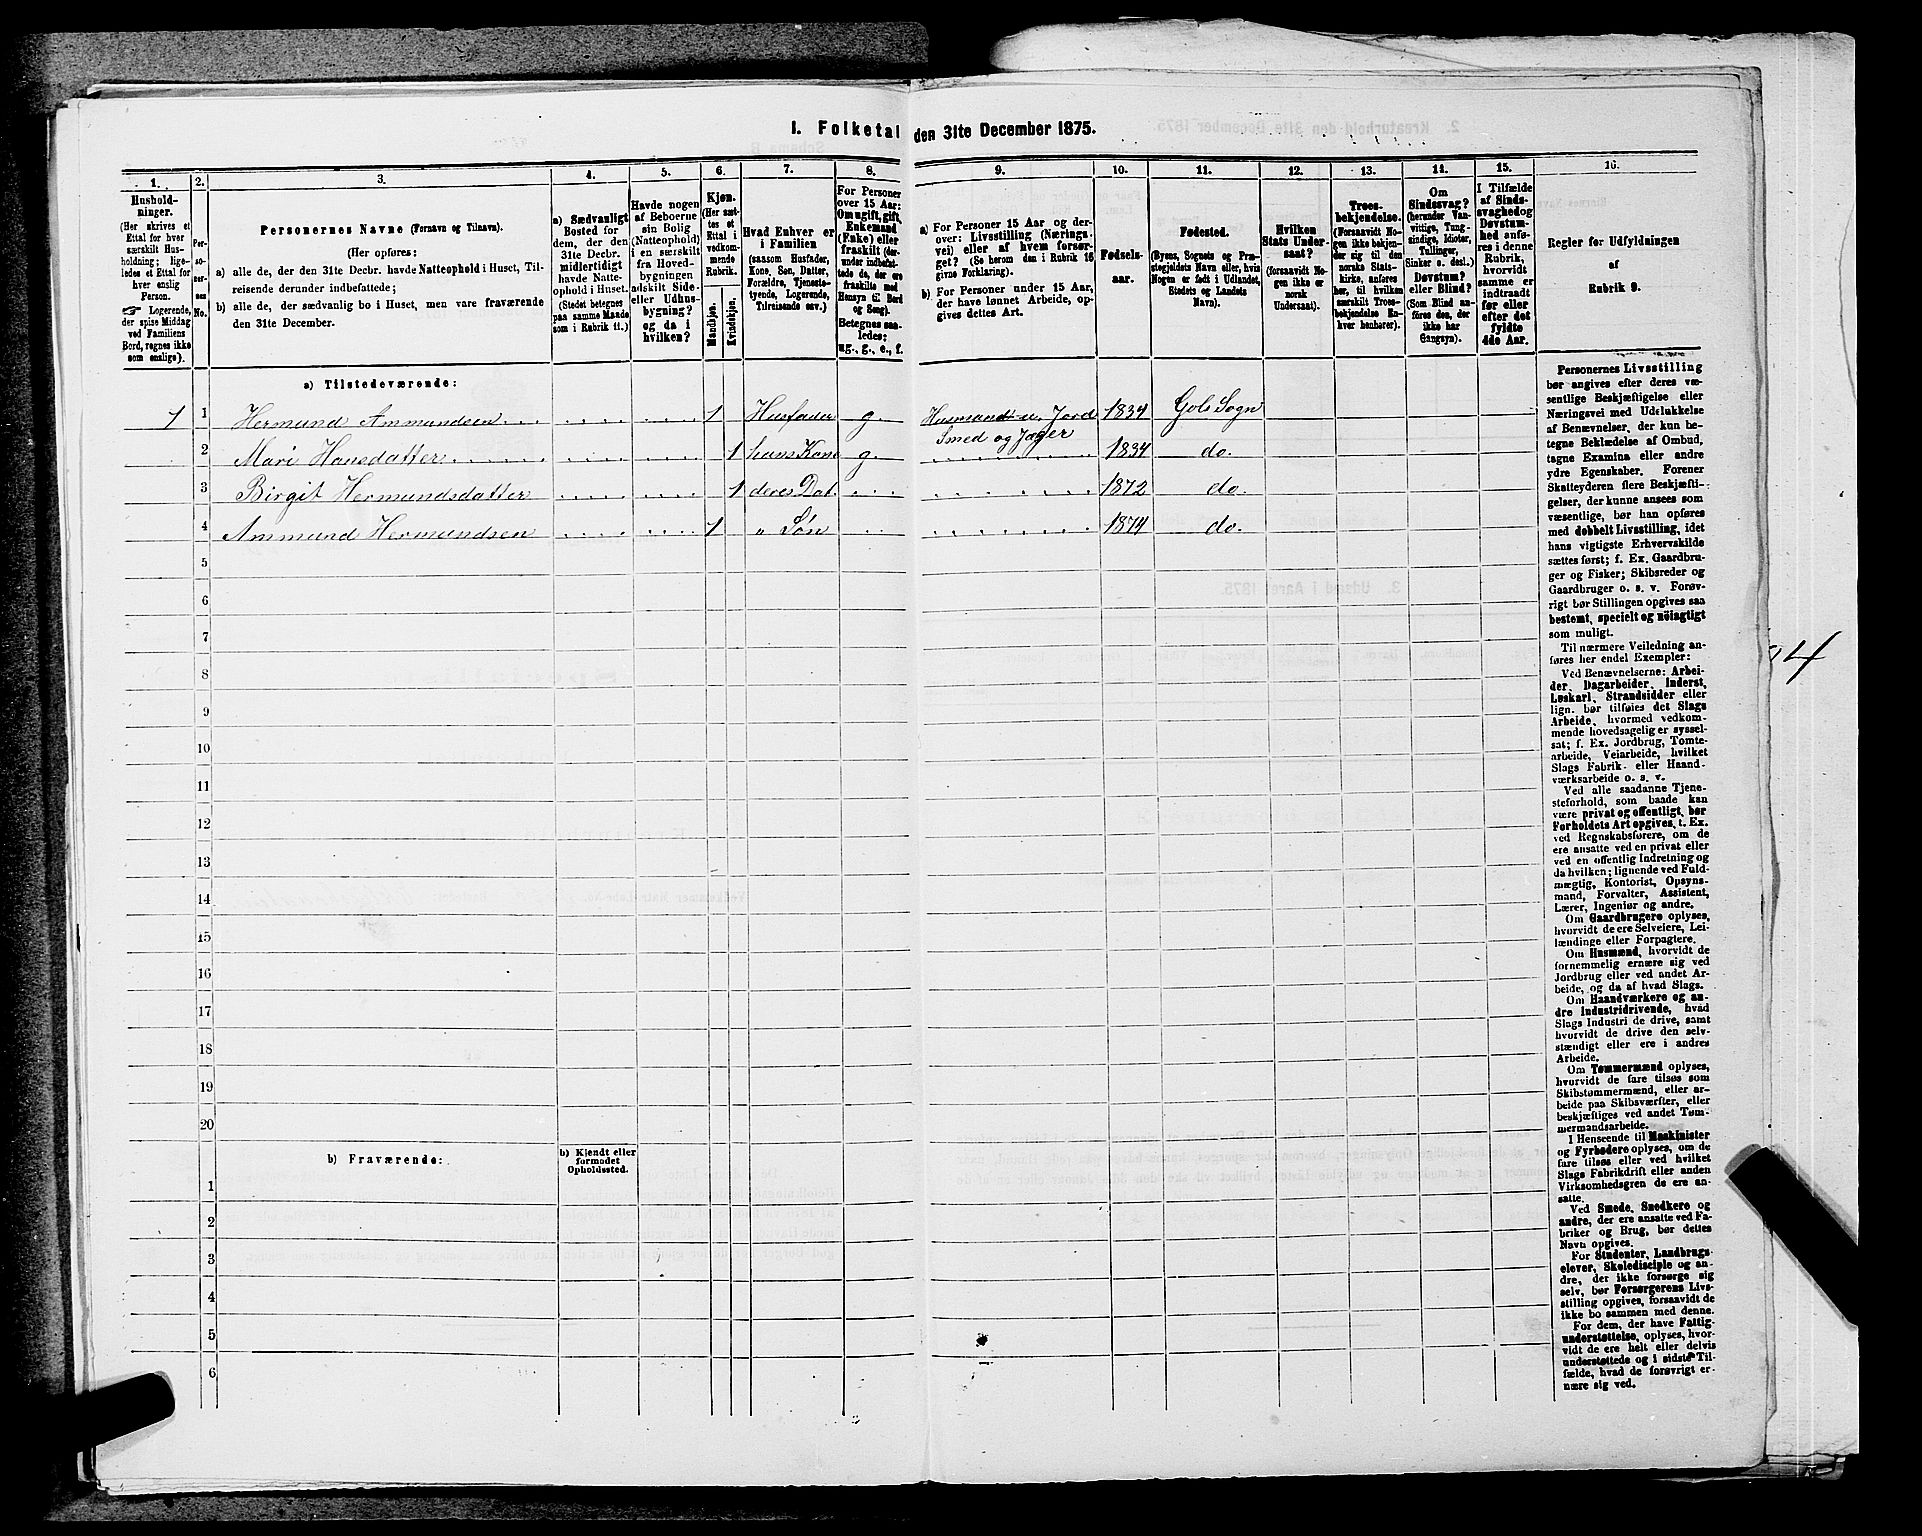 1. Folketal den 31te December 1875.
1.
Hushold-
ninger.
(Her skrives et
Ettal for hver
særskilt Hus-
holdning; lige-
ledes et Ettal for
hver enslig
Person.
☞ Logerende,
der spise Middag
ved Familiens
Bord, regnes ikke
som enslige).
2.
Per-
so-
ner-
nes
No.
3.
Personernes Navne (Fornavn og Tilnavn).
(Her opføres:
a) alle de, der den 31te Decbr. havde Natteophold i Huset, Til-
reisende derunder indbefattede;
b) alle de, der sædvanlig bo i Huset, men vare fraværende
den 31te December.
4.
a) Sædvanligt
Bosted for
dem, der den
31te Decbr.
midlertidigt
havde Natte-
ophold i Huset.
(Stedet betegnes
paa samme Maade
som i Rubrik 11.)
5.
Havde nogen
af Beboerne
sin Bolig
(Natteophold)
i en særskilt
fra Hoved-
bygningen
adskilt Side-
eller Udhus-
bygning?
og da i
hvilken?
6.
Kjøn.
(Her sæt-
tes et
Ettal i
vedkom-
mende
Rubrik.
Mandkjøn.
Kvindekjøn.
7.
Hvad Enhver er
i Familien
(saasom Husfader,
Kone, Søn, Datter,
Forældre, Tjeneste-
tyende, Logerende,
Tilreisende osv.)
8.
For Personer
over 15 Aar:
Om ugift, gift,
Enkemand
(Enke) eller
fraskilt (der-
under indbefat-
tede de, der ere
fraskilte med
Hensyn til Bord
og Seng).
Betegnes saa-
ledes:
ug., g., e., f.
9.
a) For Personer 15 Aar og der-
over: Livsstilling (Nærings-
vei) eller af hvem forsør-
get? (Se herom den i Rubrik 16
givne Forklaring).
b) For Personer under 15 Aar,
der have lønnet Arbeide, op-
gives dettes Art.
10.
Fødsels-
aar.
11.
Fødested.
(Byens, Sognets og Præ-
stegjeldets Navn eller, hvis
Nogen er født i Udlandet,
Stedets og Landets
Navn).
12.
Hvilken
Stats Under-
saat?
(forsaavidt No-
gen ikke er
norsk
Undersaat).
13.
Troes-
bekjendelse.
(Forsaavidt No-
gen ikke bekjen-
der sig til den
norske Stats-
kirke, anføres
her, til hvilken
særskilt Troes-
bekjendelse En-
hver henhører).
14.
Om
Sindssvag?
(herunder Van-
vittige, Tung-
sindige, Idioter,
Tullinger,
Sinker o. desl.)
Døvstum?
eller Blind?
(Som Blind an-
føres den, der
ikke har
Gangsyn).
15.
I Tilfælde
af Sinds-
svaghed og
Døvstum-
hed anfø-
res i denne
Rubrik,
hvorvidt
samme er
indtraadt
før eller
efter det
fyldte
4de Aar.
16.
Regler for Udfyldningen
af
Rubrik 9.
a) Tilstedeværende:
1 1 Hermund Ammundsen 1 Husfader g. Husmand m. Jord 1834 Gols Sogn
Smed og Jæger
2 Mari Hansdatter 1 hans Kone g. 1834 do.
3 Birgit Hermundsdatter 1 deres Dat. 1872 do.
4 Ammund Hermundsen 1 " Søn 1874 do.
5
6
7
8
9
10
11
12
13
14
15
16
17
18
19
20
b) Fraværende:
b) Kjendt eller
formodet
Opholdssted.
1
2
3
4
5
6
Personernes Livsstilling
bør angives efter deres væ-
sentlige Beskjæftigelse eller
Næringsvei med Udelukkelse
af Benævnelser, der kun be-
tegne Beklædelse af Ombud,
tagne Examina eller andre
ydre Egenskaber. Forener
Skatteyderen flere Beskjæfti-
gelser, der kunne ansees som
væsentlige, bør han opføres
med dobbelt Livsstilling, idet
hans vigtigste Erhvervskilde
sættes først; f. Ex. Gaardbru-
ger og Fisker; Skibsreder og
Gaardbruger o. s. v. Forøv-
rigt bør Stillingen opgives saa
bestemt, specielt og nöiagtigt
som muligt.
Til nærmere Veiledning an-
føres her endel Exempler:
Ved Benævnelserne: Arbei-
der, Dagarbeider, Inderst,
Løskarl, Strandsidder eller
lign. bør tilføies det Slags
Arbeide, hvormed vedkom-
mende hovedsagelig er syssel-
sat; f. Ex. Jordbrug, Tomte-
arbeide, Veiarbeide, hvilket
Slags Fabrik- eller Haand-
værksarbeide o. s. v.
Ved alle saadanne Tjene-
steforhold, som baade kan
være privat og offentligt, bør
Forholdets Art opgives, t. Ex.
ved Regnskabsførere, om de
ere ansatte ved en privat eller
ved en offentlig Indretning og
da hvilken; lignende ved Fuld-
mægtig, Kontorist, Opsyns-
mand, Forvalter, Assistent,
Lærer, Ingeniør og andre.
Om Gaardbrugere oplyses,
hvorvidt de ere Selveiere, Lei-
lændinge eller Forpagtere.
Om Husmænd, hvorvidt de
fornemmelig ernære sig ved
Jordbrug eller ved andet Ar-
beide, og da af hvad Slags.
Om Haandværkere og an-
dre Industridrivende, hvad
Slags Industri de drive, samt
hvorvidt de drive den selv-
stændigt eller ere i andres
Arbeide.
Om Tømmermænd oplyses,
hvorvidt de fare tilsøs som
Skibstømmermænd, eller ar-
beide paa Skibsværfter, eller
beskjæftiges ved andet Tøm-
mermandsarbeide.
I Henseende til Maskinister
og Fyrbødere oplyses, om de
fare tilsøs eller ved hvilket
Slags Fabrikdrift eller anden
Virksomhedsgren de ere an-
satte.
Ved Smede, Snedkere og
andre, der ere ansatte ved Fa-
briker og Brug, bør dettes
Navn opgives.
For Studenter, Landbrugs-
elever, Skoledisciple og an-
dre, der ikke forsørge sig
selv, bør Forsørgerens Livs-
stilling opgives, forsaavidt de
ikke bo sammen med denne.
For dem, der have Fattig-
understøttelse, oplyses, hvor-
vidt de ere helt eller delvis
understøttede og i sidste Til-
fælde, hvad de forøvrigt er-
nære sig ved.